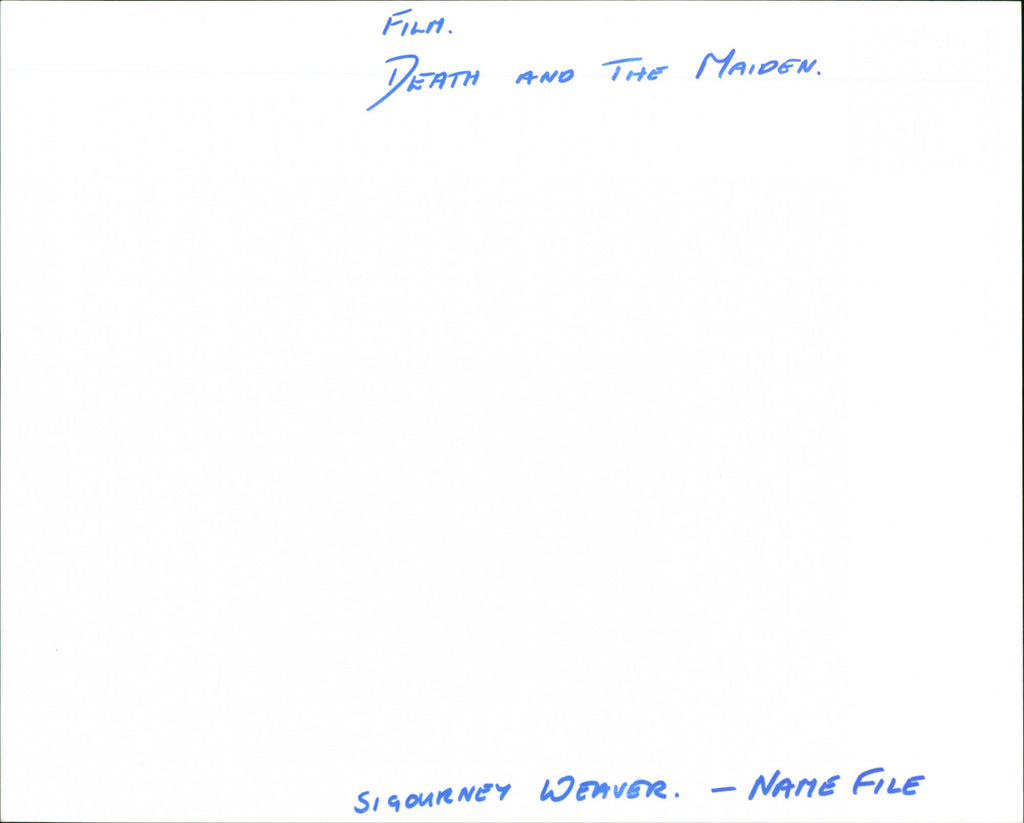 FILM.
DEATH AND THE MAIDEN.
SIGOURNEY WEAVER. — NAME FILE